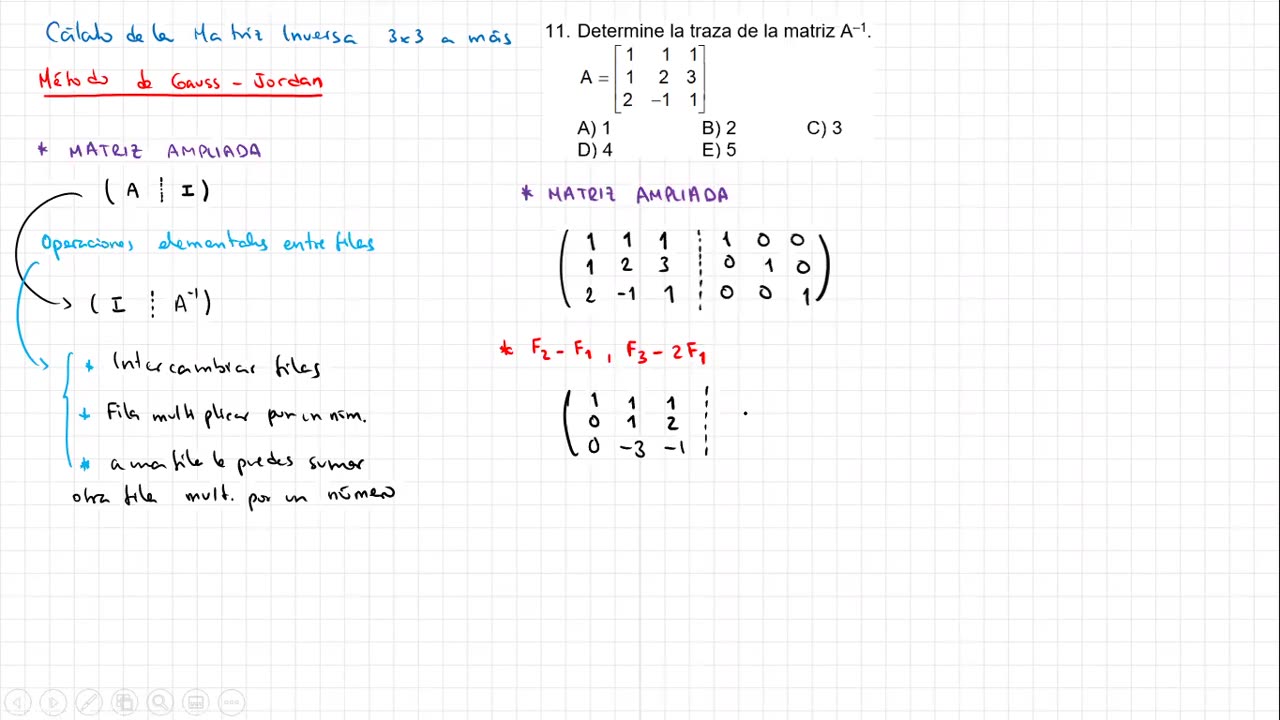 Cálculo de la Matriz Inversa 3x3 a más
Método de Gauss - Jordan
* MATRIZ AMPLIADA
( A ¦ I )
Operaciones elementales entre filas
( I ¦ A⁻¹ )
* Intercambiar filas
* Fila multiplicar por un núm.
* a una fila le puedes sumar
otra fila mult. por un número
11. Determine la traza de la matriz A⁻¹.
1 1 1
A = 1 2 3
2 −1 1
A) 1 B) 2 C) 3
D) 4 E) 5
* MATRIZ AMPLIADA
1 1 1 ¦ 1 0 0
1 2 3 ¦ 0 1 0
2 -1 1 ¦ 0 0 1
* F₂ - F₁ , F₃ - 2F₁
1 1 1
0 1 2
0 -3 -1